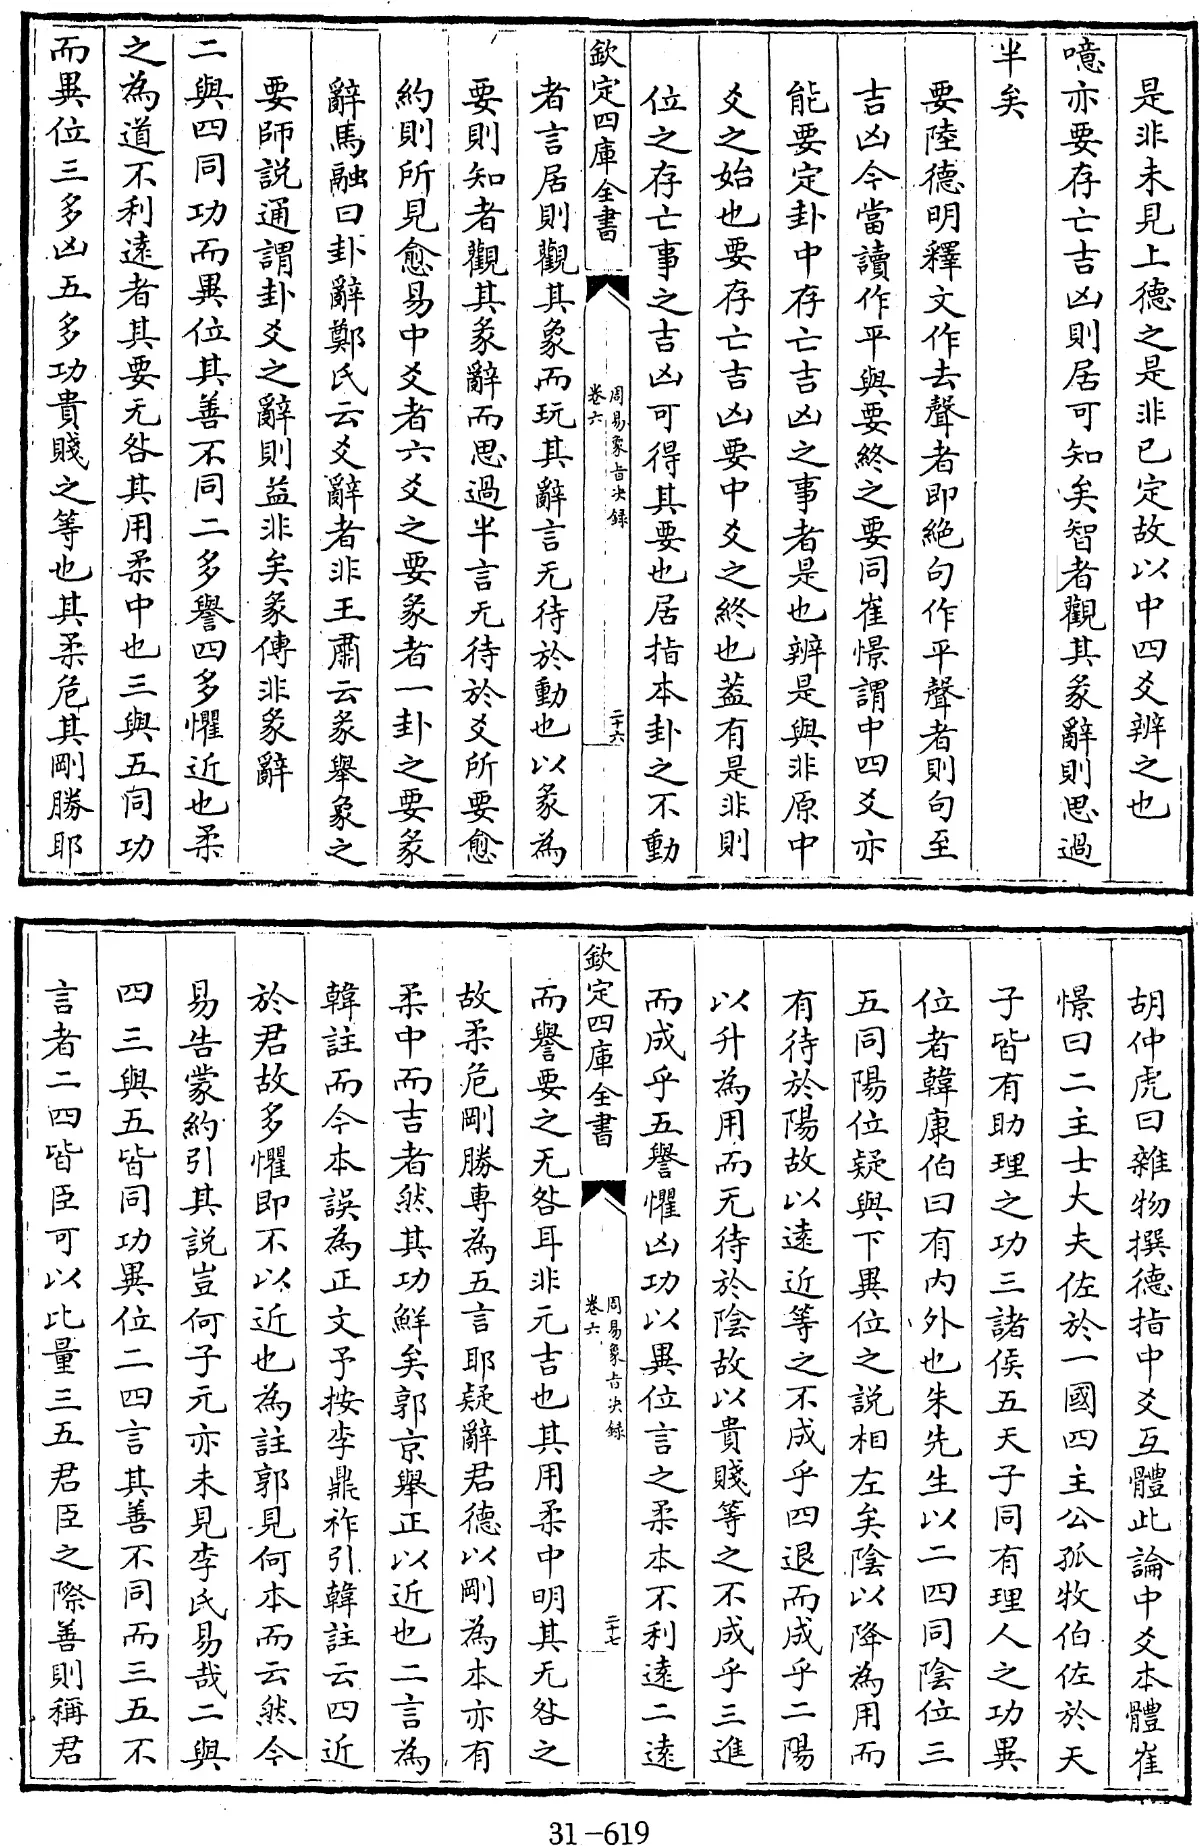 是非未見上德之是非已定故以中四爻辨之也
噫亦要存亡吉凶則居可知矣智者觀其彖辭則思過
半矣
要陸德明釋文作去聲者即絶句作平聲者則句至
吉凶今當讀作平與要終之要同崔憬謂中四爻亦
能要定卦中存亡吉凶之事者是也辨是與非原中
爻之始也要存亡吉凶要中爻之終也葢有是非則
位之存亡事之吉凶可得其要也居指本卦之不動
欽定四庫全書
周易象旨決録
卷六
二十六
者言居則觀其象而玩其辭言无待於動也以彖為
要則知者觀其彖辭而思過半言无待於爻所要愈
約則所見愈易中爻者六爻之要彖者一卦之要彖
辭馬融曰卦辭鄭氏云爻辭者非王肅云彖舉象之
要師説通謂卦爻之辭則益非矣彖傳非彖辭
二與四同功而異位其善不同二多譽四多懼近也柔
之為道不利逺者其要无咎其用柔中也三與五同功
而異位三多凶五多功貴賤之等也其柔危其剛勝耶
胡仲虎曰雜物撰德指中爻互體此論中爻本體崔
憬曰二主士大夫佐於一國四主公孤牧伯佐於天
子皆有助理之功三諸侯五天子同有理人之功異
位者韓康伯曰有内外也朱先生以二四同陰位三
五同陽位疑與下異位之説相左矣陰以降為用而
有待於陽故以逺近等之不成乎四退而成乎二陽
以升為用而无待於陰故以貴賤等之不成乎三進
而成乎五譽懼凶功以異位言之柔本不利逺二逺
欽定四庫全書
周易象旨決録
卷六
二十七
而譽要之无咎耳非元吉也其用柔中明其无咎之
故柔危剛勝專為五言耶疑辭君德以剛為本亦有
柔中而吉者然其功鮮矣郭京舉正以近也二言為
韓註而今本誤為正文予按李鼎祚引韓註云四近
於君故多懼即不以近也為註郭見何本而云然今
易告蒙約引其説豈何子元亦未見李氏易哉二與
四三與五皆同功異位二四言其善不同而三五不
言者二四皆臣可以比量三五君臣之際善則稱君
31-619